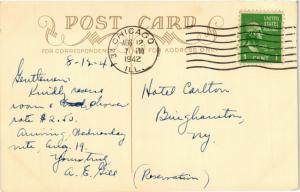 POST CARD
FOR CORRESPONDENCE
FOR ADDRESS ONLY
CHICAGO
AUG 12
1942
ILL.
UNITED STATES
1 CENT
8-12-42
Gentlemen
Kindly reserve
room & shower
rate $2.50.
Arriving Wednesday
nite, Aug. 19.
Yours truly
A. E. Gill
Hotel Carlton
Binghamton,
Ny.
(Reservation)